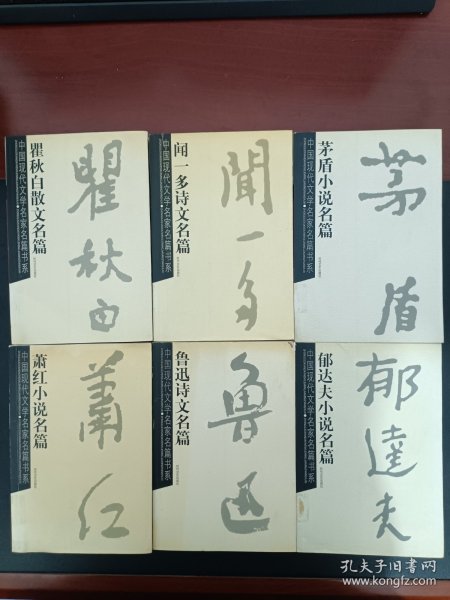 中国现代文学名家名篇书系
瞿秋白散文名篇
瞿秋白
中国现代文学名家名篇书系
闻一多诗文名篇
聞一多
中国现代文学名家名篇书系
茅盾小说名篇
茅盾
中国现代文学名家名篇书系
萧红小说名篇
萧红
中国现代文学名家名篇书系
鲁迅诗文名篇
鲁迅
中国现代文学名家名篇书系
郁达夫小说名篇
郁達夫
孔夫子旧书网
www.kongfz.com